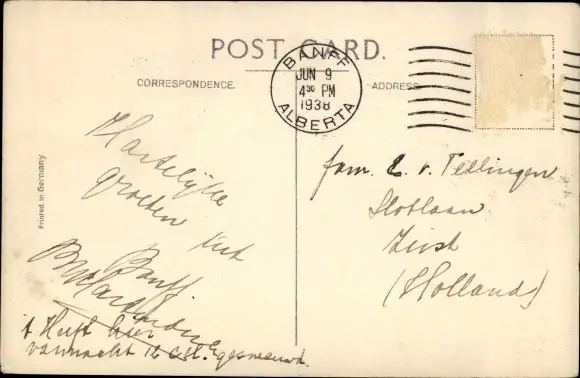 POST CARD.
CORRESPONDENCE.
ADDRESS
BANFF
JUN 9
4³⁰ PM
1938
ALBERTA
Printed in Germany
Hartelijke
groeten
uit
Banff
't Heeft hier
vannacht 12 c.M. gesneeuwd.
fam. E. v. Tellingen
Slotlaan
Zeist
(Holland)